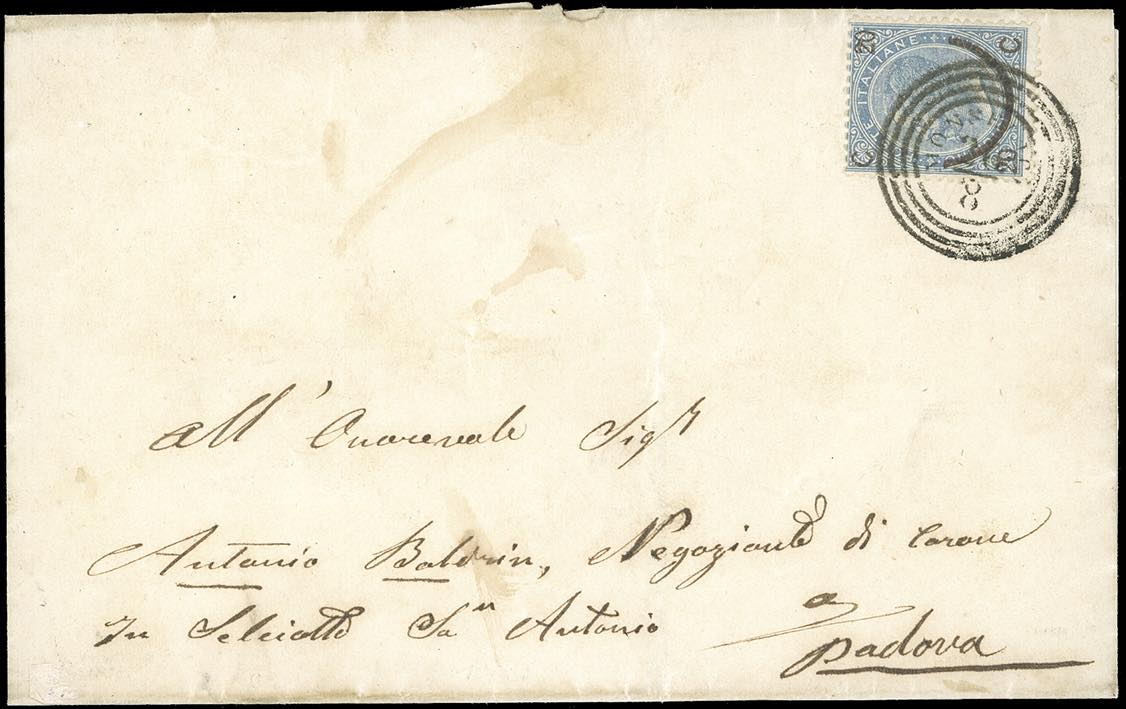 20 C
LE ITALIANE
C 20
all' Onorevole Sigr
Antonio Baldrin, Negoziante di Carone
In Selciatto San Antonio
a
Padova